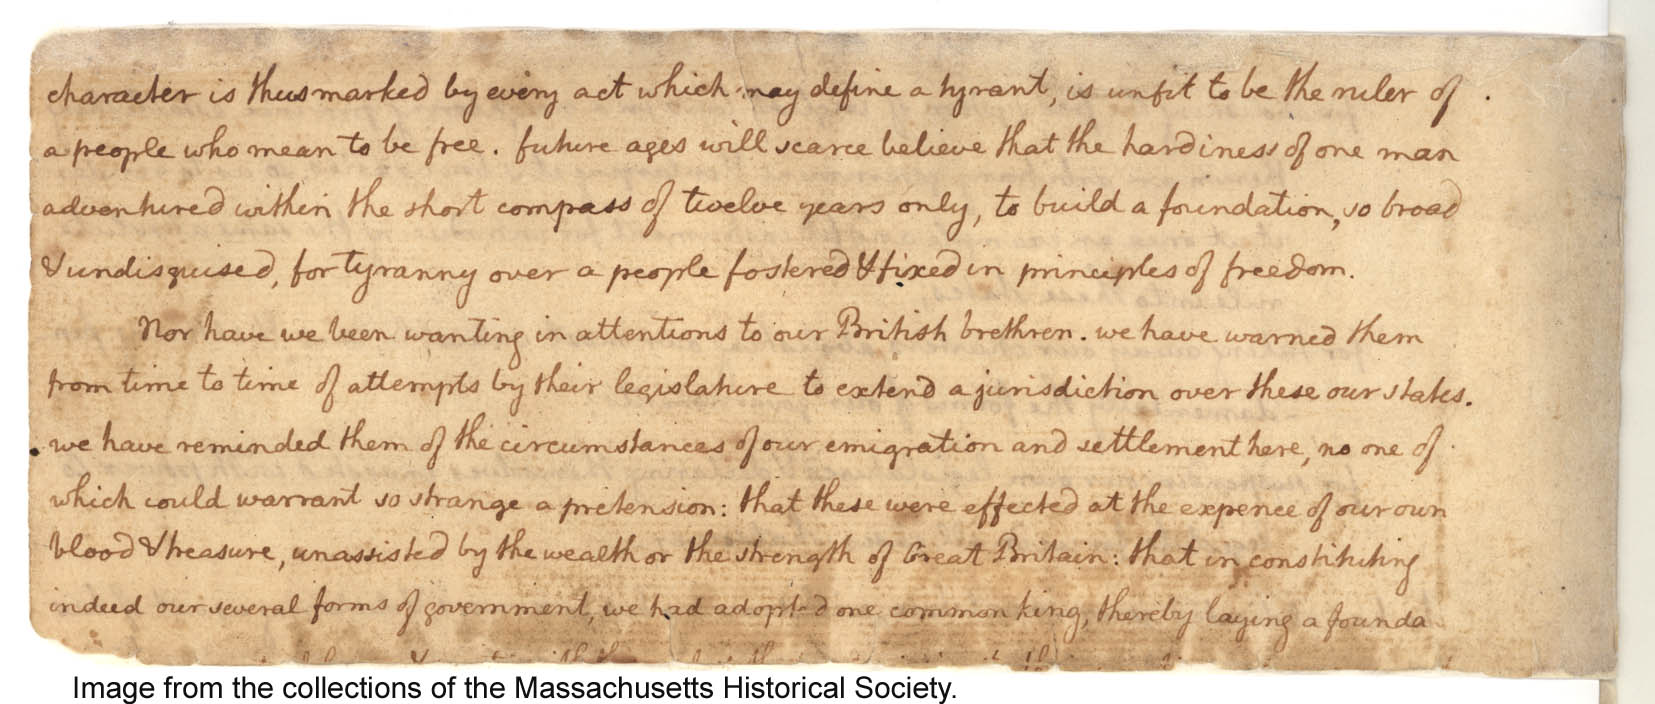 character is thus marked by every act which may define a tyrant, is unfit to be the ruler of
a people who mean to be free. future ages will scarce believe that the hardiness of one man
adventured within the short compass of twelve years only, to build a foundation, so broad
& undisguised, for tyranny over a people fostered & fixed in principles of freedom.
Nor have we been wanting in attentions to our British brethren. we have warned them
from time to time of attempts by their legislature to extend a jurisdiction over these our states.
we have reminded them of the circumstances of our emigration and settlement here, no one of
which could warrant so strange a pretension: that these were effected at the expence of our own
blood & treasure, unassisted by the wealth or the strength of Great Britain: that in constituting
indeed our several forms of government, we had adopted one common king, thereby laying a founda
Image from the collections of the Massachusetts Historical Society.